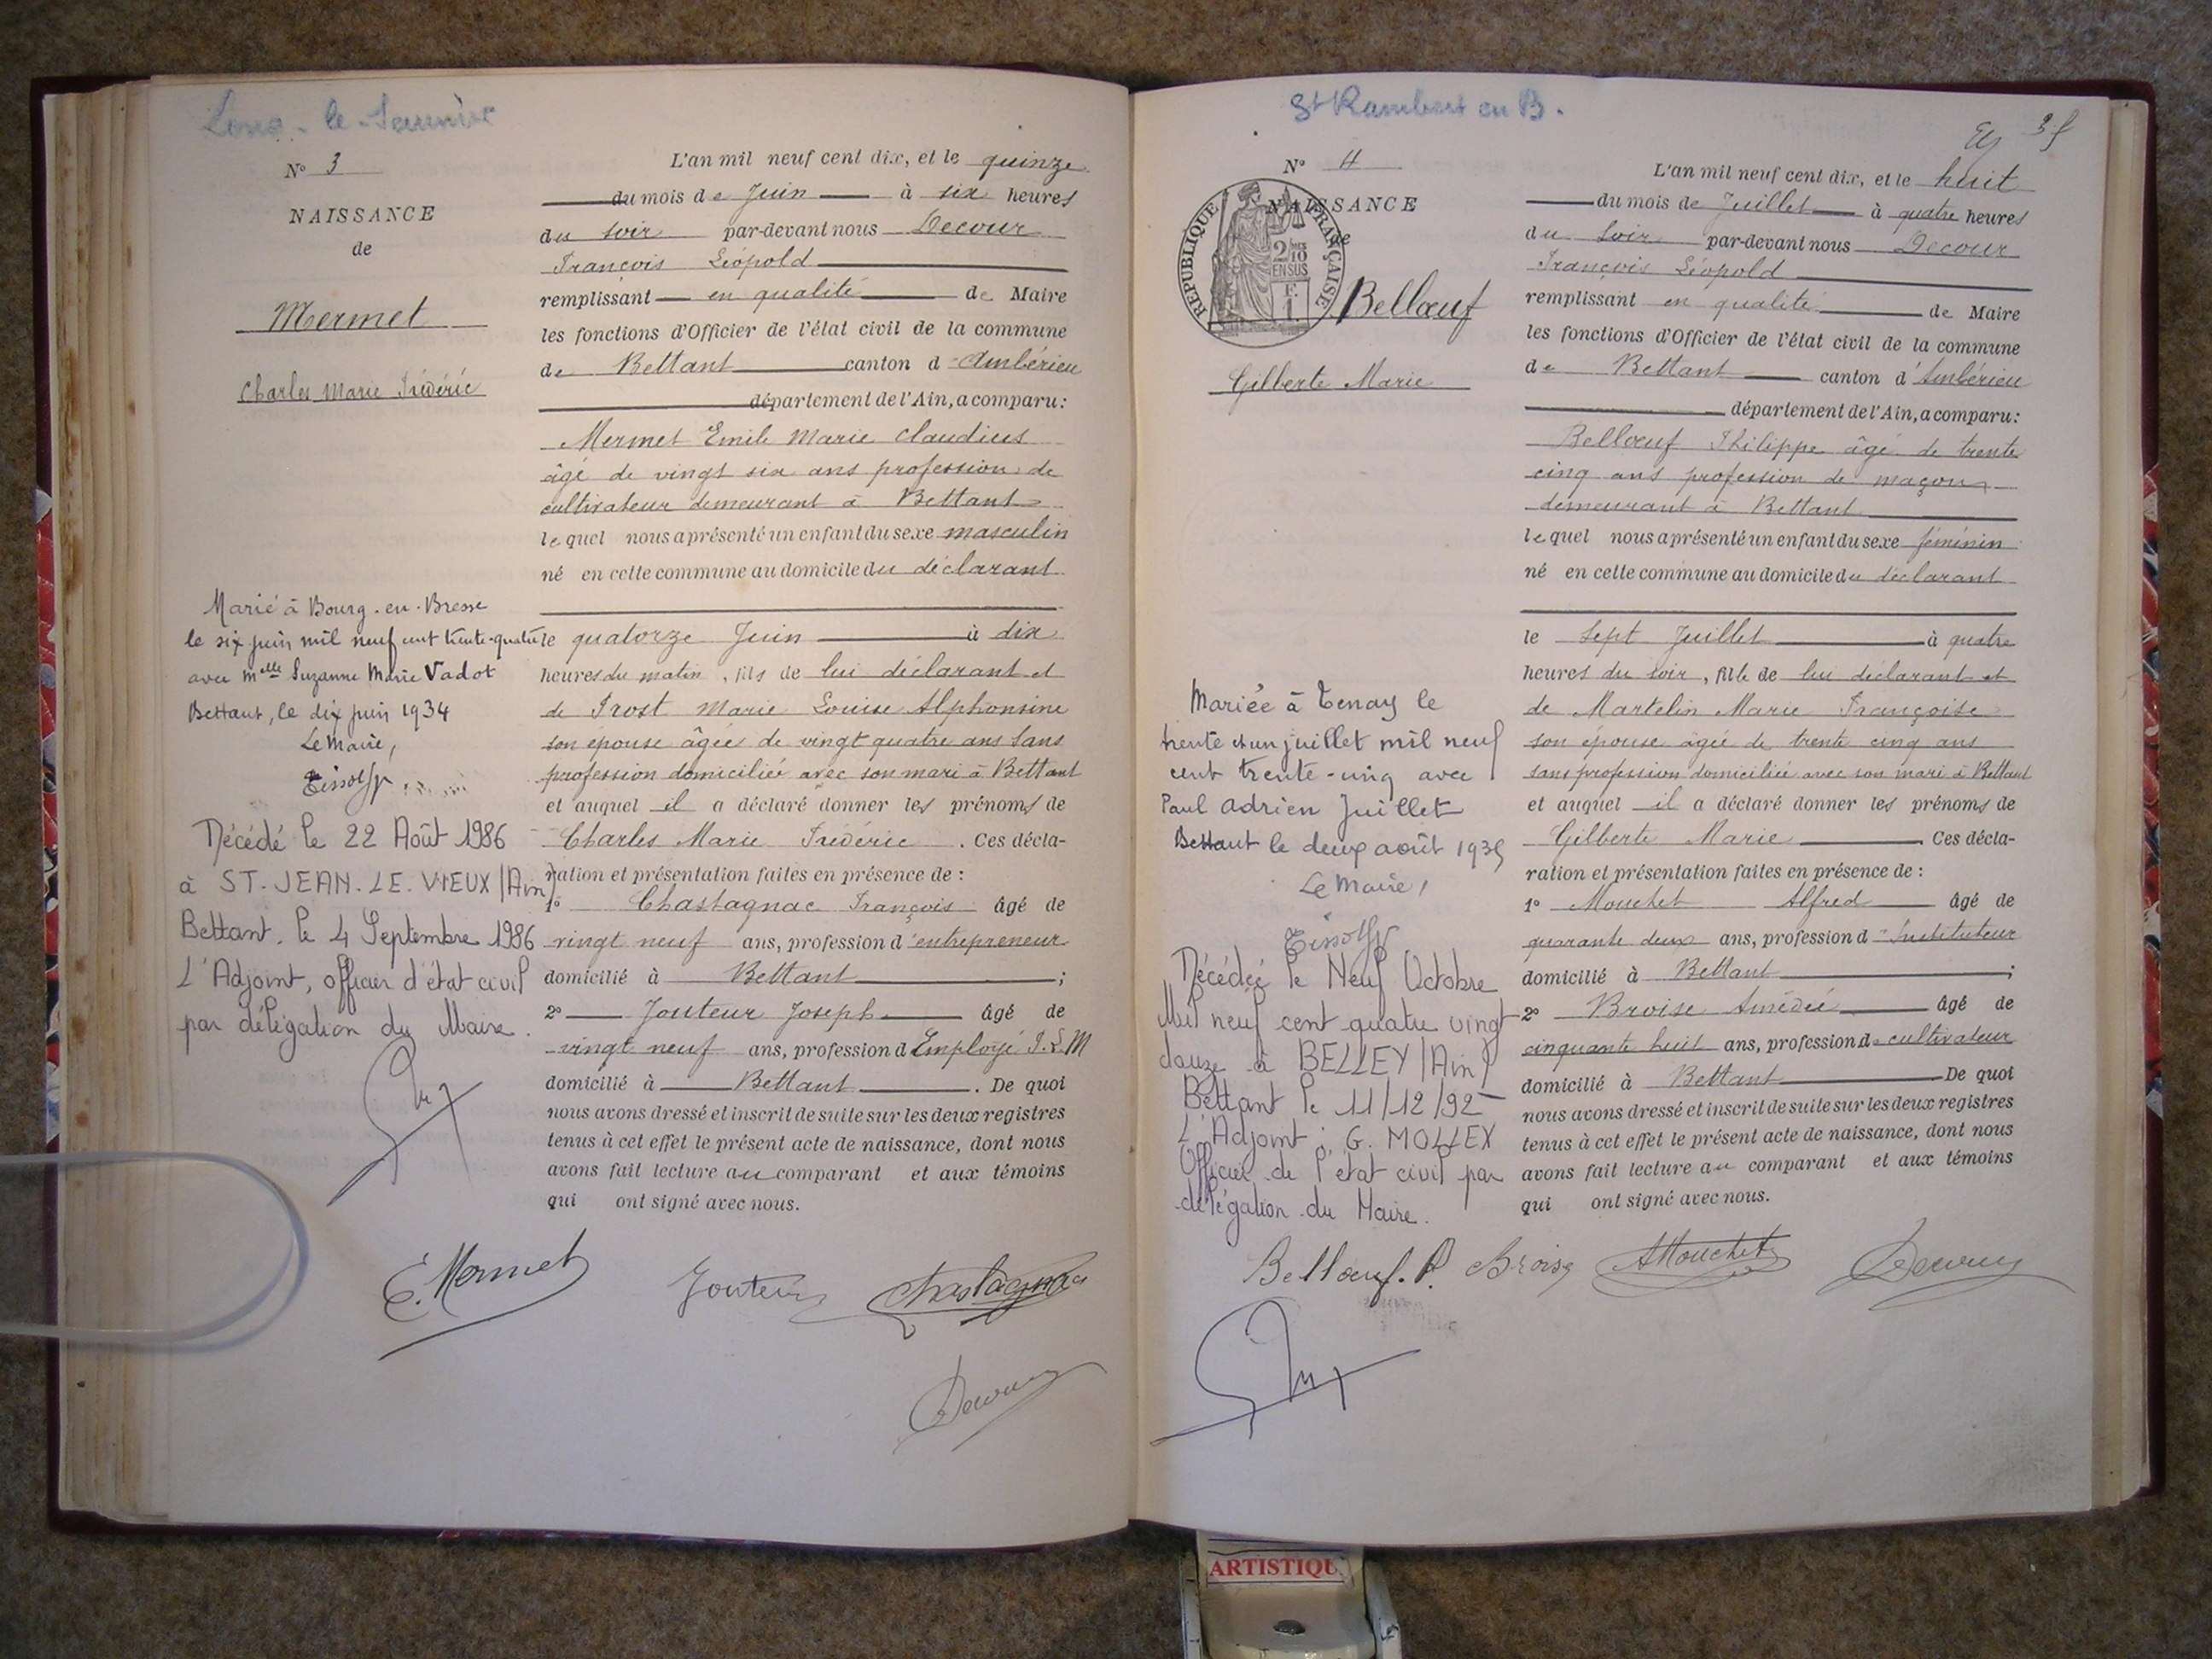 Lons-le-Saunier
N° 3
NAISSANCE
de
Mermet
Charles Marie Frédéric
Marié à Bourg-en-Bresse
le six juin mil neuf cent trente-quatre
avec Melle Suzanne Marie Vadot
Bettant, le dix juin 1934
Le Maire,
Décédé le 22 Août 1986
à ST-JEAN-LE-VIEUX (Ain)
Bettant, le 4 Septembre 1986
L'Adjoint, officier d'état civil
par délégation du Maire.
L'an mil neuf cent dix, et le quinze
du mois de Juin à six heures
du soir par-devant nous Decour
François Léopold
remplissant en qualité de Maire
les fonctions d'Officier de l'état civil de la commune
de Bettant canton d'Ambérieu
département de l'Ain, a comparu:
Mermet Emile Marie Claudius
âgé de vingt six ans profession de
cultivateur demeurant à Bettant
lequel nous a présenté un enfant du sexe masculin
né en cette commune au domicile du déclarant
le quatorze Juin à dix
heures du matin, fils de lui déclarant et
de Frost Marie Louise Alphonsine
son épouse âgée de vingt quatre ans sans
profession domiciliée avec son mari à Bettant
et auquel il a déclaré donner les prénoms de
Charles Marie Frédéric. Ces décla-
ration et présentation faites en présence de :
1° Chastagnac François âgé de
vingt neuf ans, profession d'entrepreneur
domicilié à Bettant ;
2° Jouteur Joseph âgé de
vingt neuf ans, profession d Employé P.L.M
domicilié à Bettant. De quoi
nous avons dressé et inscrit de suite sur les deux registres
tenus à cet effet le présent acte de naissance, dont nous
avons fait lecture au comparant et aux témoins
qui ont signé avec nous.
E. Mermet Jouteur Chastagnac
Decour
St Rambert en B.
35
N° 4
NAISSANCE
de
RÉPUBLIQUE FRANÇAISE
2/10
EN SUS
Bellœuf
Gilberte Marie
Mariée à Tenay le
trente et un juillet mil neuf
cent trente-cinq avec
Paul Adrien Juillet
Bettant le deux août 1935
Le Maire,
Décédée le Neuf Octobre
Mil neuf cent quatre vingt
douze à BELLEY (Ain)
Bettant le 11/12/92
L'Adjoint : G. MOLLEX
Officier de l'état civil par
délégation du Maire.
L'an mil neuf cent dix, et le huit
du mois de Juillet à quatre heures
du soir par-devant nous Decour
François Léopold
remplissant en qualité de Maire
les fonctions d'Officier de l'état civil de la commune
de Bettant canton d'Ambérieu
département de l'Ain, a comparu:
Bellœuf Philippe âgé de trente
cinq ans profession de maçon
demeurant à Bettant
lequel nous a présenté un enfant du sexe féminin
né en cette commune au domicile du déclarant
le sept Juillet à quatre
heures du soir, fille de lui déclarant et
de Martelin Marie Françoise
son épouse âgée de trente cinq ans
sans profession domiciliée avec son mari à Bettant
et auquel il a déclaré donner les prénoms de
Gilberte Marie. Ces décla-
ration et présentation faites en présence de :
1° Mouchet Alfred âgé de
quarante deux ans, profession d'Instituteur
domicilié à Bettant ;
2° Broise Amédée âgé de
cinquante huit ans, profession de cultivateur
domicilié à Bettant De quoi
nous avons dressé et inscrit de suite sur les deux registres
tenus à cet effet le présent acte de naissance, dont nous
avons fait lecture au comparant et aux témoins
qui ont signé avec nous.
Bellœuf. P. Broise AMouchet Decour
ARTISTIQU